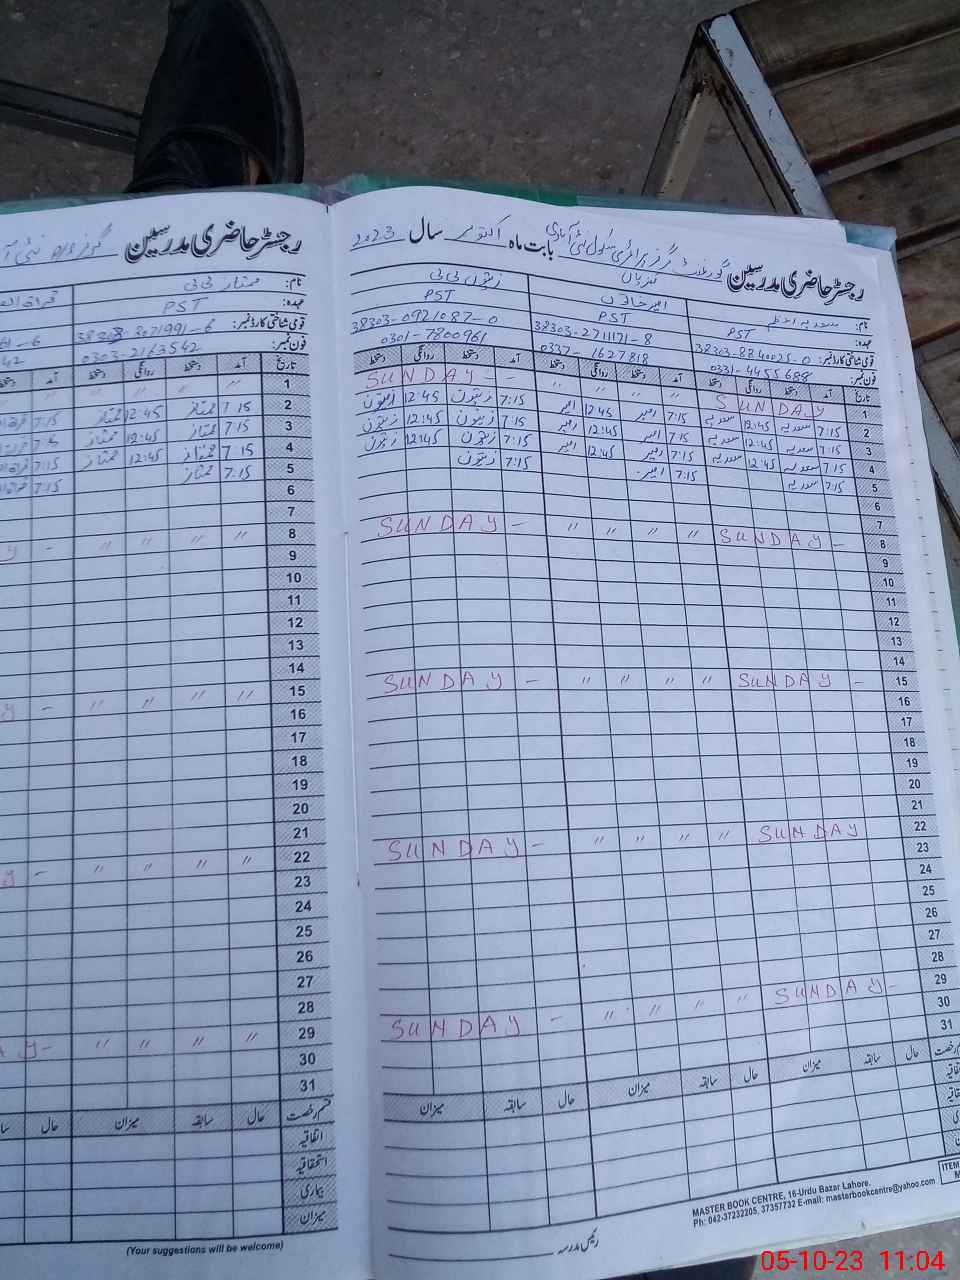 رجسٹر حاضری مدرسین گورنمنٹ گرلز پرائمری سکول نئی آبادی بابت ماہ اکتوبر سال 2023
نام: سعدیہ اعظم
عہدہ: PST
قومی شناختی کارڈ نمبر: 38303-8840025-0
فون نمبر: 0331-4455688
امیر خاتون
PST
38303-2711171-8
0337-1627818
زیتون بی بی
PST
38303-0921087-0
0301-7800961
تاریخ آمد دستخط روانگی دستخط آمد دستخط روانگی دستخط آمد دستخط روانگی دستخط
1 SUNDAY " " " " SUNDAY - -
2 7:15 سعدیہ 12:45 سعدیہ 7:15 امیر 12:45 امیر 7:15 زیتون 12:45 زیتون
3 7:15 سعدیہ 12:45 سعدیہ 7:15 امیر 12:45 امیر 7:15 زیتون 12:45 زیتون
4 7:15 سعدیہ 12:45 سعدیہ 7:15 امیر 12:45 امیر 7:15 زیتون 12:45 زیتون
5 7:15 سعدیہ 7:15 امیر 7:15 زیتون
6
7
8 SUNDAY - " " " " SUNDAY -
9
10
11
12
13
14
15 SUNDAY - " " " " SUNDAY -
16
17
18
19
20
21
22 SUNDAY " " " " SUNDAY -
23
24
25
26
27
28
29 SUNDAY - " " " " SUNDAY -
30
31
حال سابقہ میزان حال سابقہ میزان حال سابقہ میزان
رئیس مدرسہ
MASTER BOOK CENTRE, 16-Urdu Bazar Lahore.
Ph: 042-37232205, 37357732 E-mail: masterbookcentre@yahoo.com
ITEM
رجسٹر حاضری مدرسین
نام: ممتاز بی بی
عہدہ: PST
قومی شناختی کارڈ نمبر: 38303-8071991-6
فون نمبر: 0303-2163542
تاریخ آمد دستخط روانگی دستخط آمد
1 " " " "
2 7:15 ممتاز 12:45 ممتاز 7:15
3 7:15 ممتاز 12:45 ممتاز 7:15
4 7:15 ممتاز 12:45 ممتاز 7:15
5 7:15 ممتاز 7:15
6
7
8 " " " " - Y
9
10
11
12
13
14
15 " " " " - Y
16
17
18
19
20
21
22 " " " " - Y
23
24
25
26
27
28
29 " " " " AY-
30
31
قسم رخصت حال سابقہ میزان حال
اتفاقیہ
استحقاقیہ
بیماری
میزان
(Your suggestions will be welcome)
05-10-23 11:04